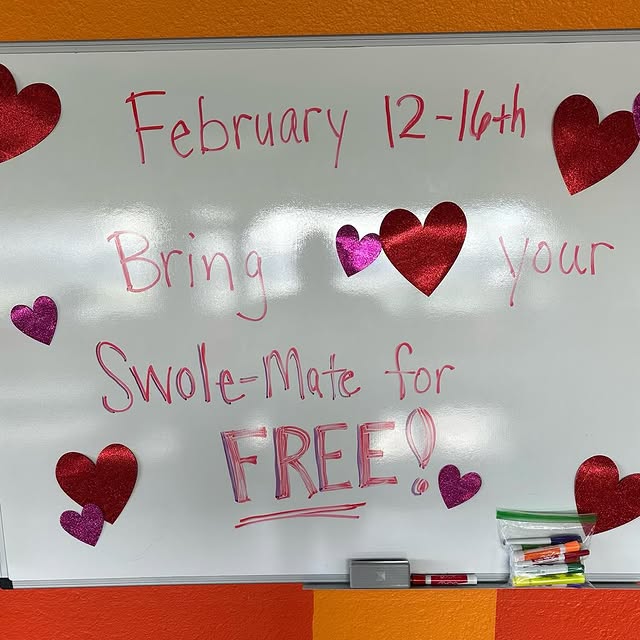 February 12-16th
Bring your
Swole-Mate for
FREE!